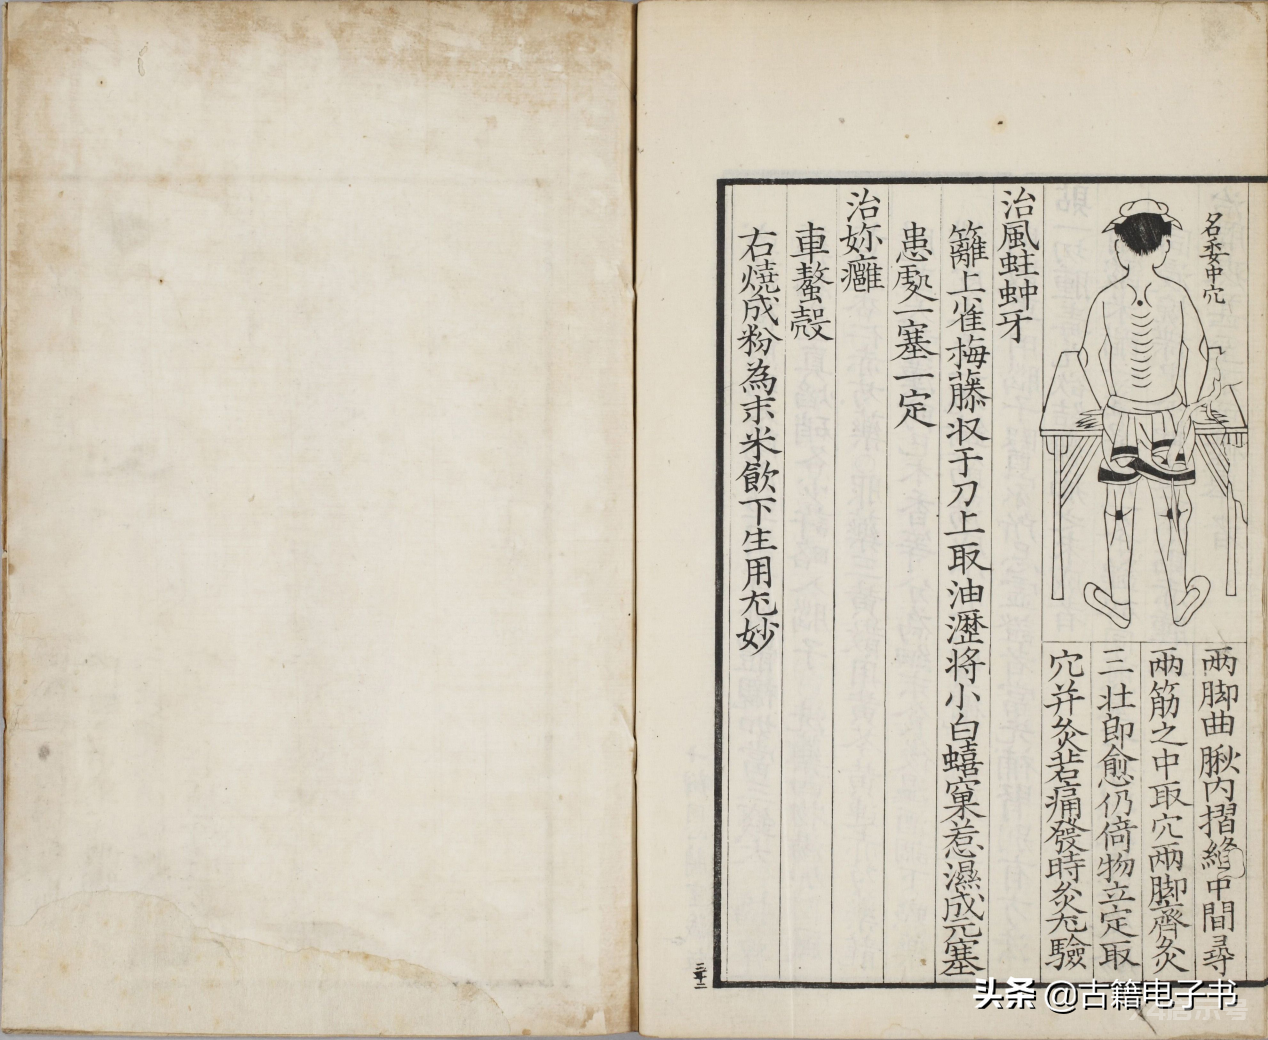 名委中穴
兩脚曲䐐内摺縫中間尋
兩筋之中取穴兩脚齊灸
三壮即愈仍倚物立定取
穴并灸若痛發時灸尤驗
治風蛀蚛牙
籬上雀梅藤収于刀上取油瀝将小白蟢窠惹濕成元塞
患處一塞一定
治妳癰
車螯殼
右燒成粉為末米飲下生用尤妙
头条 @古籍电子书